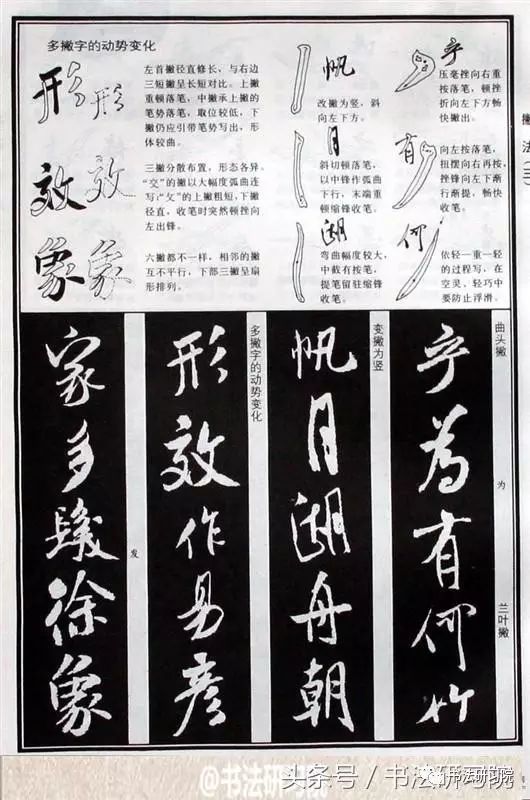 多撇字的动势变化
形 形
左首撇径直修长，与右边
三短撇呈长短对比。上撇
重顿落笔，中撇承上撇的
笔势落笔，取位较低，下
撇仍应引带笔势写出，形
体较曲。
效 效
三撇分散布置，形态各异。
“交”的撇以大幅度弧曲连
写；“攵”的上撇粗短，下撇
径直，收笔时突然顿挫向
左出锋。
象 象
六撇都不一样，相邻的撇
互不平行，下部三撇呈扇
形排列。
帆
改撇为竖，斜
向左下方。
月
斜切顿落笔，
以中锋作弧曲
下行，末端重
顿缩锋收笔。
湖
弯曲幅度较大，
中截有按笔，
提笔留驻缩锋
收笔。
乎
压毫挫向右重
按落笔，顿挫
折向左下方畅
快撇出。
有
向左按落笔，
扭摆向右再按，
挫锋向左下渐
行渐提，畅快
收笔。
何
依轻一重一轻
的过程写，在
空灵、轻巧中
要防止浮滑。
撇法三
曲头撇
为
兰叶撇
乎为有何竹
变撇为竖
帆月湖舟朝
多撇字的动势变化
形效作易彦
发
家多踨徐象
@书法研究院
头条号／书法研究院
书法研究院